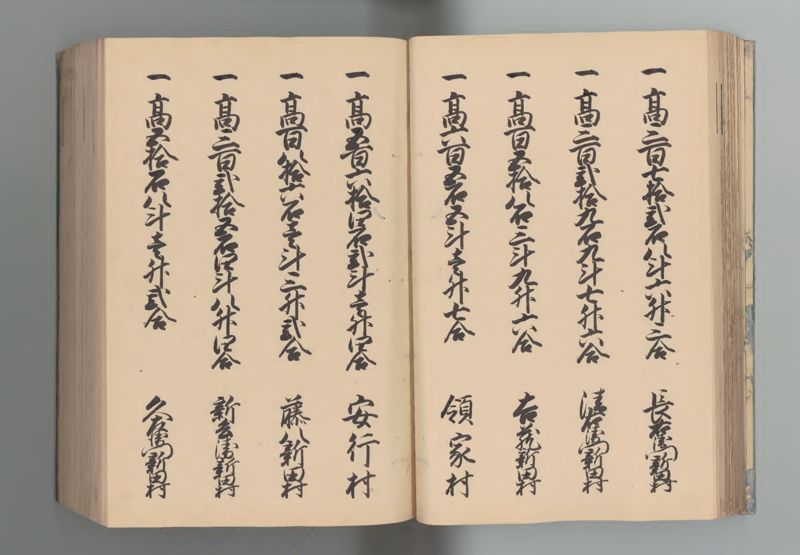 一 高三百七拾弐石八斗六升三合 長右衛門新田村
一 高三百弐拾九石九斗七升六合 清右衛門新田村
一 高百五拾八石三斗九升六合 吉蔵新田村
一 高六百五石五斗壱升七合 領家村
一 高五百六拾四石弐斗壱升四合 安行村
一 高百八拾六石壱斗三升弐合 藤八新田村
一 高三百弐拾五石四斗八升四合 新右衛門新田村
一 高五拾石八斗壱升弐合 久左衛門新田村